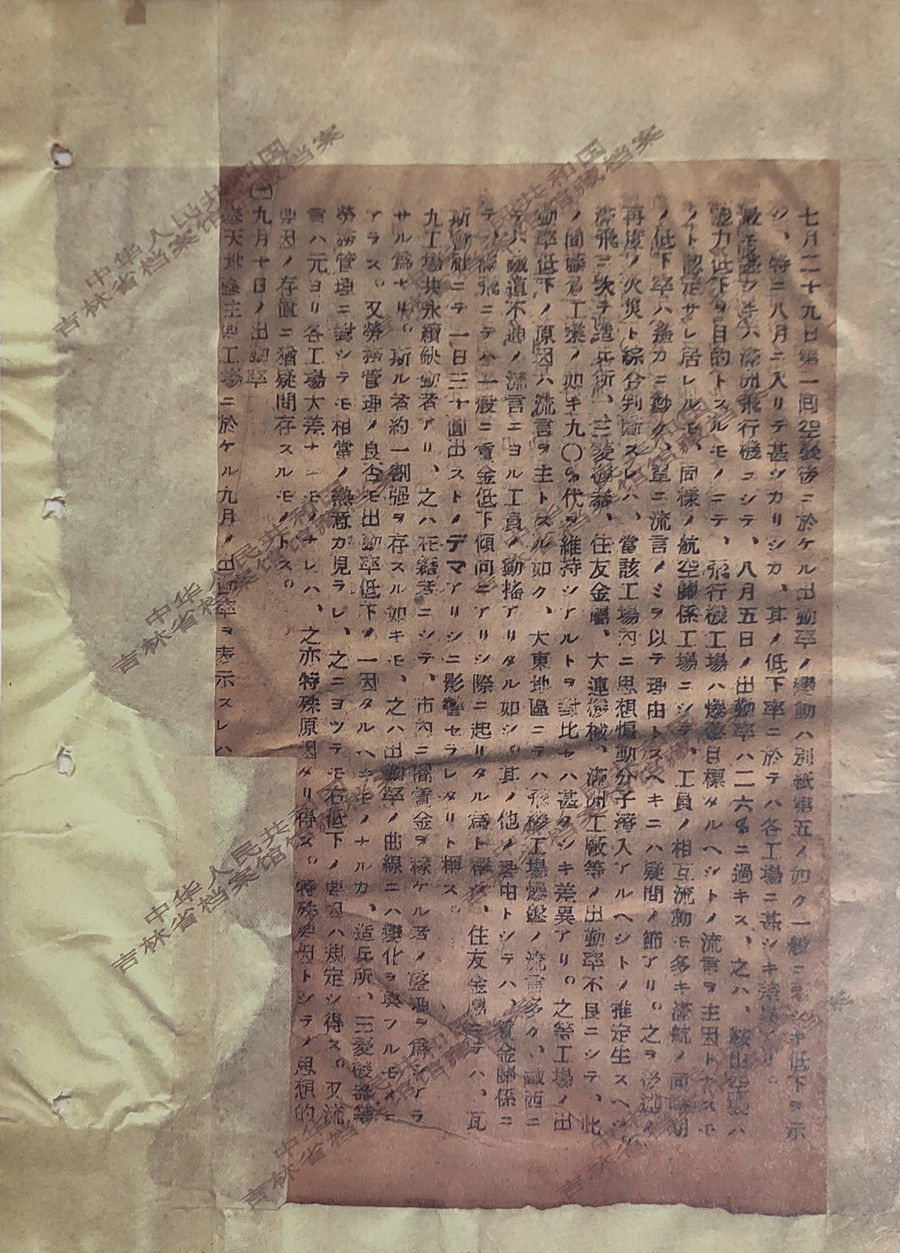 七月二十九日第一回空襲後ニ於ケル出動率ノ變動ハ別紙第五ノ如ク一般ニ著シキ低下ヲ示
シ、特ニ八月ニ入リテ甚シカリシカ、其ノ低下率ニ於テハ各工場ニ甚シキ差異アリ。
最モ甚シキハ滿洲飛行機ニシテ、八月五日ノ出動率ハ二六%ニ過キス、之ハ、鞍山空襲ハ
能力低下ヲ目的トスルモノニテ、飛行機工場ハ爆撃目標タルヘシトノ流言ヲ主因トナスモ
ノト認定サレ居レルモ、同様ノ航空關係工場ニシテ、工員ノ相互流動モ多キ滿航ノ同時期
ノ低下率ハ僅カニ動ク、單ニ流言ノミヲ以テ理由トスヘキニハ疑問ノ節アリ。之ヲ後述ノ
再度ノ火災ト綜合判斷スレハ、當該工場内ニ思想煽動分子潜入アルヘシトノ推定生スヘシ。
滿飛ニ次テ造兵所、三菱機器、住友金屬、大連機械、滿洲工廠等ノ出動率不良ニシテ、此
ノ間藤倉工業ノ如キ九〇%代ヲ維持シアルト對比セハ甚タシキ差異アリ。之等工場ノ出
動率低下ノ原因ハ流言ヲ主トスル如ク、大東地區ニテハ飛機工場爆撃ノ流言多ク、鐵西ニ
テハ鐵道不通ノ流言ニヨル工員ノ動搖アリタル如シ。其ノ他ノ理由トシテハ、賃金關係ニ
テ、滿飛ニテハ一般ニ賃金低下傾向ニアリシ際ニ起リタル爲ト稱シ、住友金屬ニテハ、瓦
斯會社ニテ一日三十圓出ストノデマアリシニ影響セラレタリト稱ス。
九工場共永續缺勤者アリ、之ハ在籍者ニシテ、市内ニ高賃金ヲ稼ケル者ノ整理ヲ爲シアラ
サル爲ナリ。斯ル者約一割强ヲ存スル如キモ、之ハ出動率ノ曲線ニハ變化ヲ與フルモノニ
アラス。又勞務管理ノ良否モ出動率低下ノ一因タルヘキモノナルカ、造兵所、三菱機器等
勞務管理ニ對シテモ相當ノ熱意カ見ラレ、之ニヨツテモ右低下ノ要因ハ規定シ得ス。又流
言ハ元ヨリ各工場大差ナキモノナレハ、之亦特殊原因タリ得ス。特殊要因トシテノ思想的
要因ノ存值ニ猶疑問存スルモノトス。
(二) 九月十日ノ出動率
奉天地區主要工場ニ於ケル九月ノ出動率ヲ表示スレハ
中华人民共和国
吉林省档案馆馆藏档案
中华人民共和国
吉林省档案馆馆藏档案
中华人民共和国
吉林省档案馆馆藏档案
中华人民共和国
吉林省档案馆馆藏档案